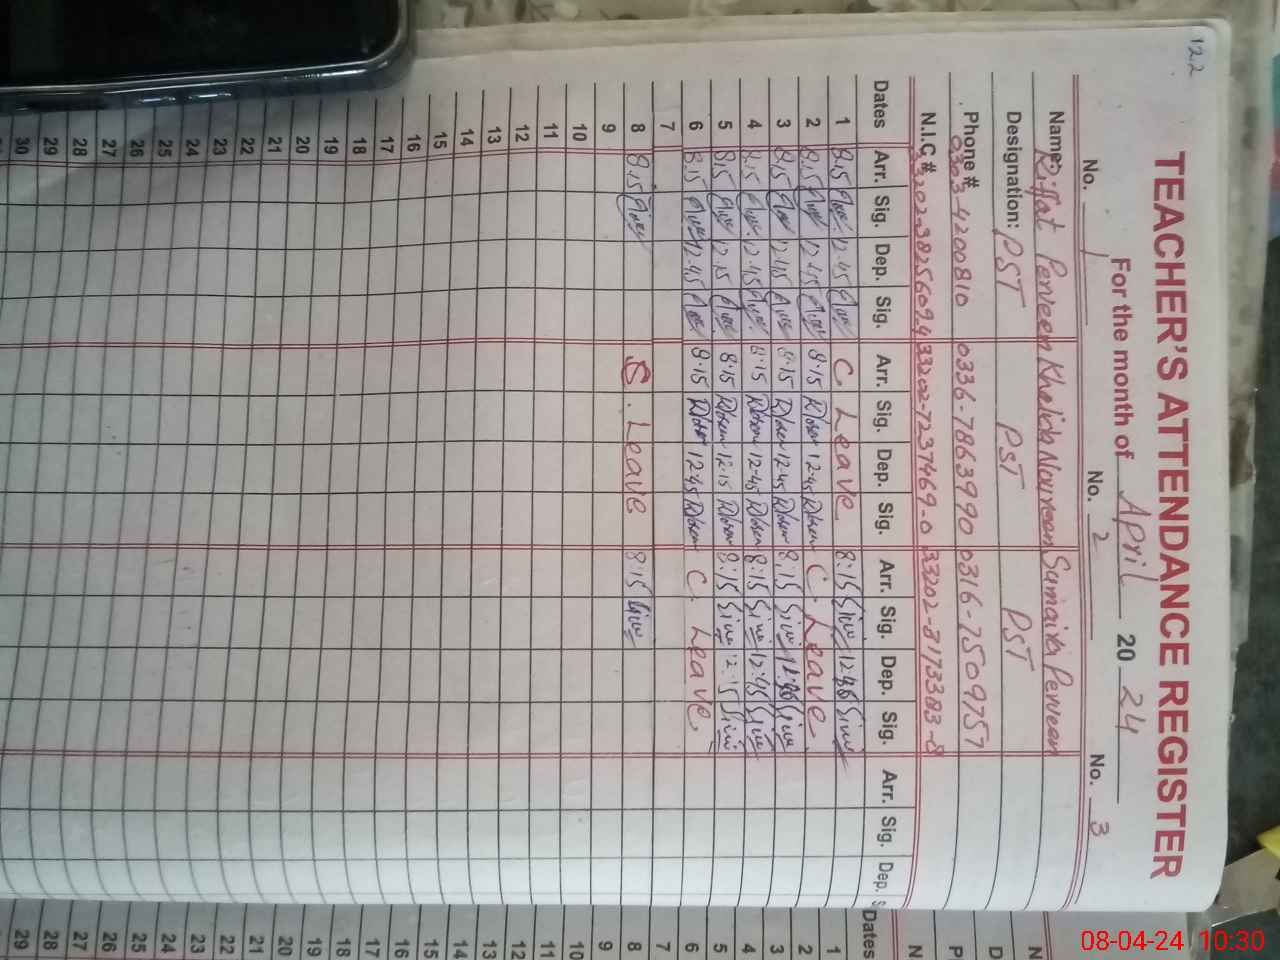 122
TEACHER'S ATTENDANCE REGISTER
For the month of April 20 24
No. 1 No. 2 No. 3
Name: Riffat Perveen Khalida Noureen Sumaira Perveen
Designation: PST PST PST
Phone # 0303-4200810 0336-7863990 0316-7509757
N.I.C # 33202-3825609-4 33202-7237469-0 33202-8173383-8
Dates Arr. Sig. Dep. Sig. Arr. Sig. Dep. Sig. Arr. Sig. Dep. Sig. Arr. Sig. Dep. S
1 8:15 12:45 C. Leave 8:15 12:45
2 8:15 12:45 8:15 12:45 C. Leave
3 8:15 12:45 8:15 12:45 8:15
4 8:15 12:45 8:15 12:45 8:15 12:45
5 8:15 12:15 8:15 12:15 8:15 12:15
6 8:15 12:45 8:15 12:45 C. Leave
7
8 8:15 Leave 8:15
9
10
11
12
13
14
15
16
17
18
19
20
21
22
23
24
25
26
27
28
29
30
N
D
P
N
Dates
1
2
3
4
5
6
7
8
9
10
11
12
13
14
15
16
17
18
19
20
21
22
23
24
25
26
27
28
29
08-04-24 10:30